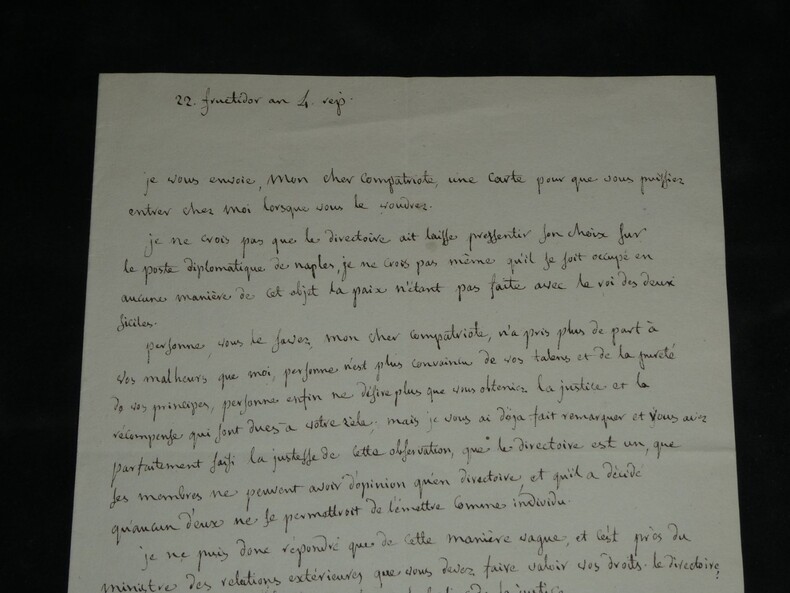 22. fructidor an 4. rep.
je vous envoie, mon cher compatriote, une carte pour que vous puissiez
entrer chez moi lorsque vous le voudrez.
je ne crois pas que le directoire ait laissé pressentir son choix sur
le poste diplomatique de naples, je ne crois pas même qu'il se soit occupé en
aucune manière de cet objet la paix n'étant pas faite avec le roi des deux
siciles.
personne, vous le savez, mon cher compatriote, n'a pris plus de part à
vos malheurs que moi, personne n'est plus convaincu de vos talens et de la pureté
de vos principes, personne enfin ne désire plus que vous obteniez la justice et la
récompense qui sont dues à votre zèle; mais je vous ai déja fait remarquer et vous avez
parfaitement saisi la justesse de cette observation, que le directoire est un, que
ses membres ne peuvent avoir d'opinion qu'en directoire, et qu'il a décidé
qu'aucun d'eux ne se permettroit de l'émettre comme individu.
je ne puis donc répondre que de cette manière vague, et c'est près du
ministre des relations extérieures que vous devez faire valoir vos droits. le directoire,
la justice